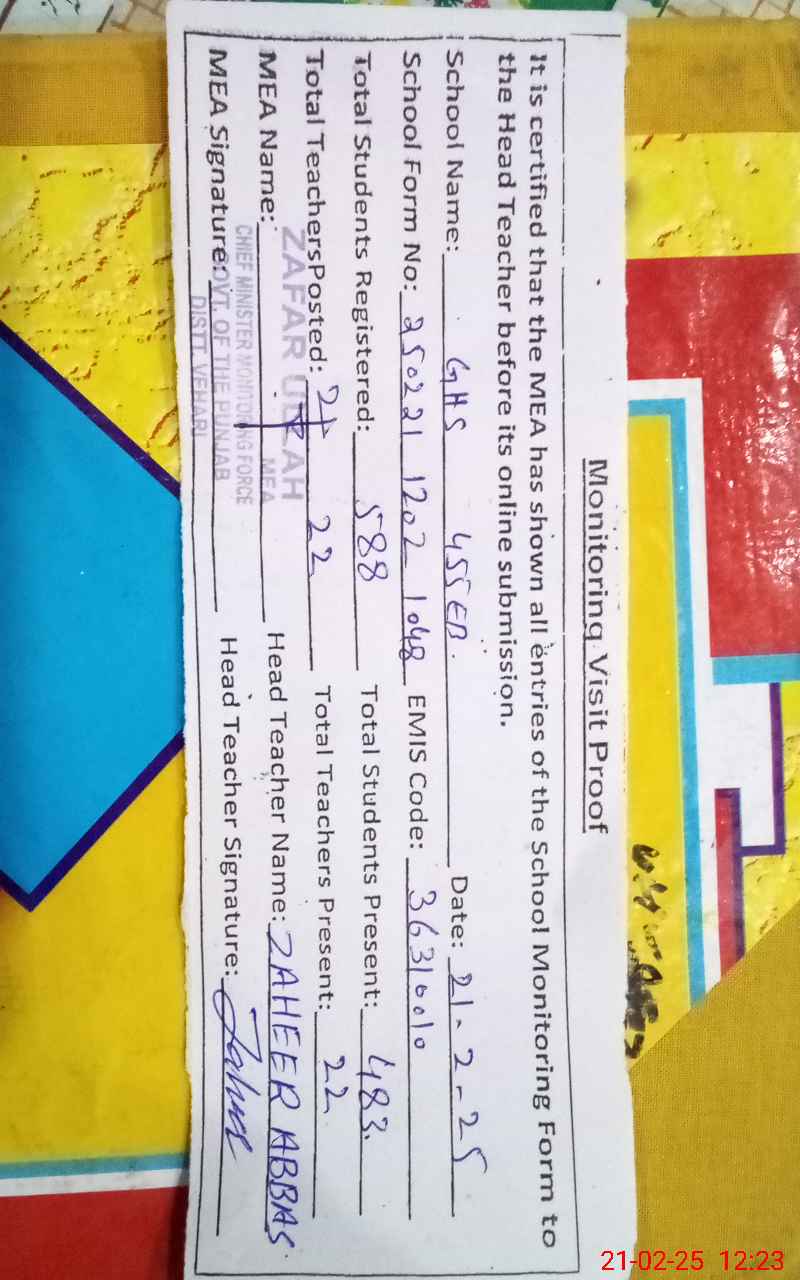 Monitoring Visit Proof
It is certified that the MEA has shown all entries of the School Monitoring Form to
the Head Teacher before its online submission.
School Name: GHS 455 EB. Date: 21-2-25
School Form No: 250221 1202 1048 EMIS Code: 36310010
Total Students Registered: 588 Total Students Present: 483
Total TeachersPosted: 22 Total Teachers Present: 22
MEA Name: Head Teacher Name: ZAHEER ABBAS
MEA Signature: Head Teacher Signature:
ZAFAR ULLAH
MEA
CHIEF MINISTER MONITORING FORCE
GOVT. OF THE PUNJAB
DISTT. VEHARI
21-02-25 12:23